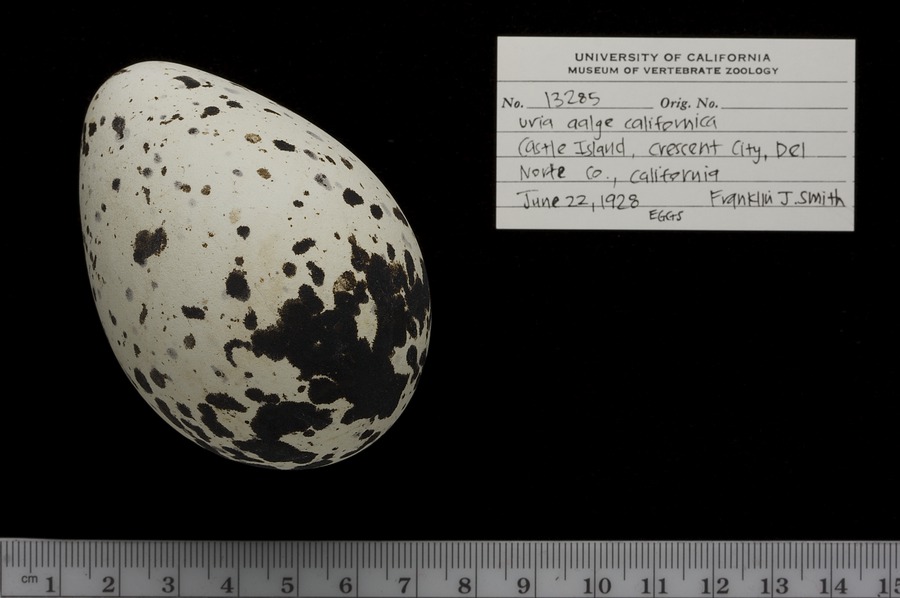 UNIVERSITY OF CALIFORNIA
MUSEUM OF VERTEBRATE ZOOLOGY
No. 13285 Orig. No.
Uria aalge californica
Castle Island, Crescent City, Del
Norte Co., California
June 22, 1928 Franklin J. Smith
EGGS
cm 1 2 3 4 5 6 7 8 9 10 11 12 13 14 15